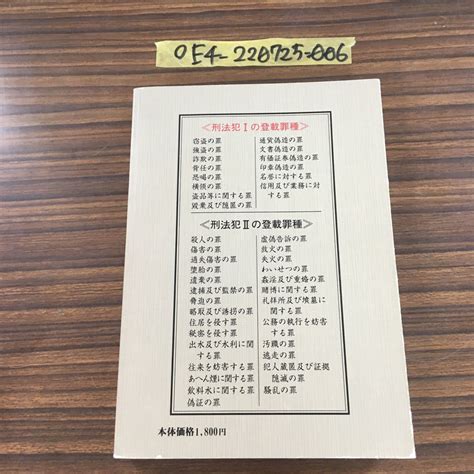 OE4-220725-006
≪刑法犯Ⅰの登載罪種≫
窃盗の罪
強盗の罪
詐欺の罪
背任の罪
恐喝の罪
横領の罪
盗品等に関する罪
毀棄及び隠匿の罪
通貨偽造の罪
文書偽造の罪
有価証券偽造の罪
印章偽造の罪
名誉に対する罪
信用及び業務に対
する罪
≪刑法犯Ⅱの登載罪種≫
殺人の罪
傷害の罪
過失傷害の罪
堕胎の罪
遺棄の罪
逮捕及び監禁の罪
脅迫の罪
略取及び誘拐の罪
住居を侵す罪
秘密を侵す罪
出水及び水利に関
する罪
往来を妨害する罪
あへん煙に関する罪
飲料水に関する罪
偽証の罪
虚偽告訴の罪
放火の罪
失火の罪
わいせつの罪
姦淫及び重婚の罪
賭博に関する罪
礼拝所及び墳墓に
関する罪
公務の執行を妨害
する罪
汚職の罪
逃走の罪
犯人蔵匿及び証拠
隠滅の罪
騒乱の罪
本体価格1,800円